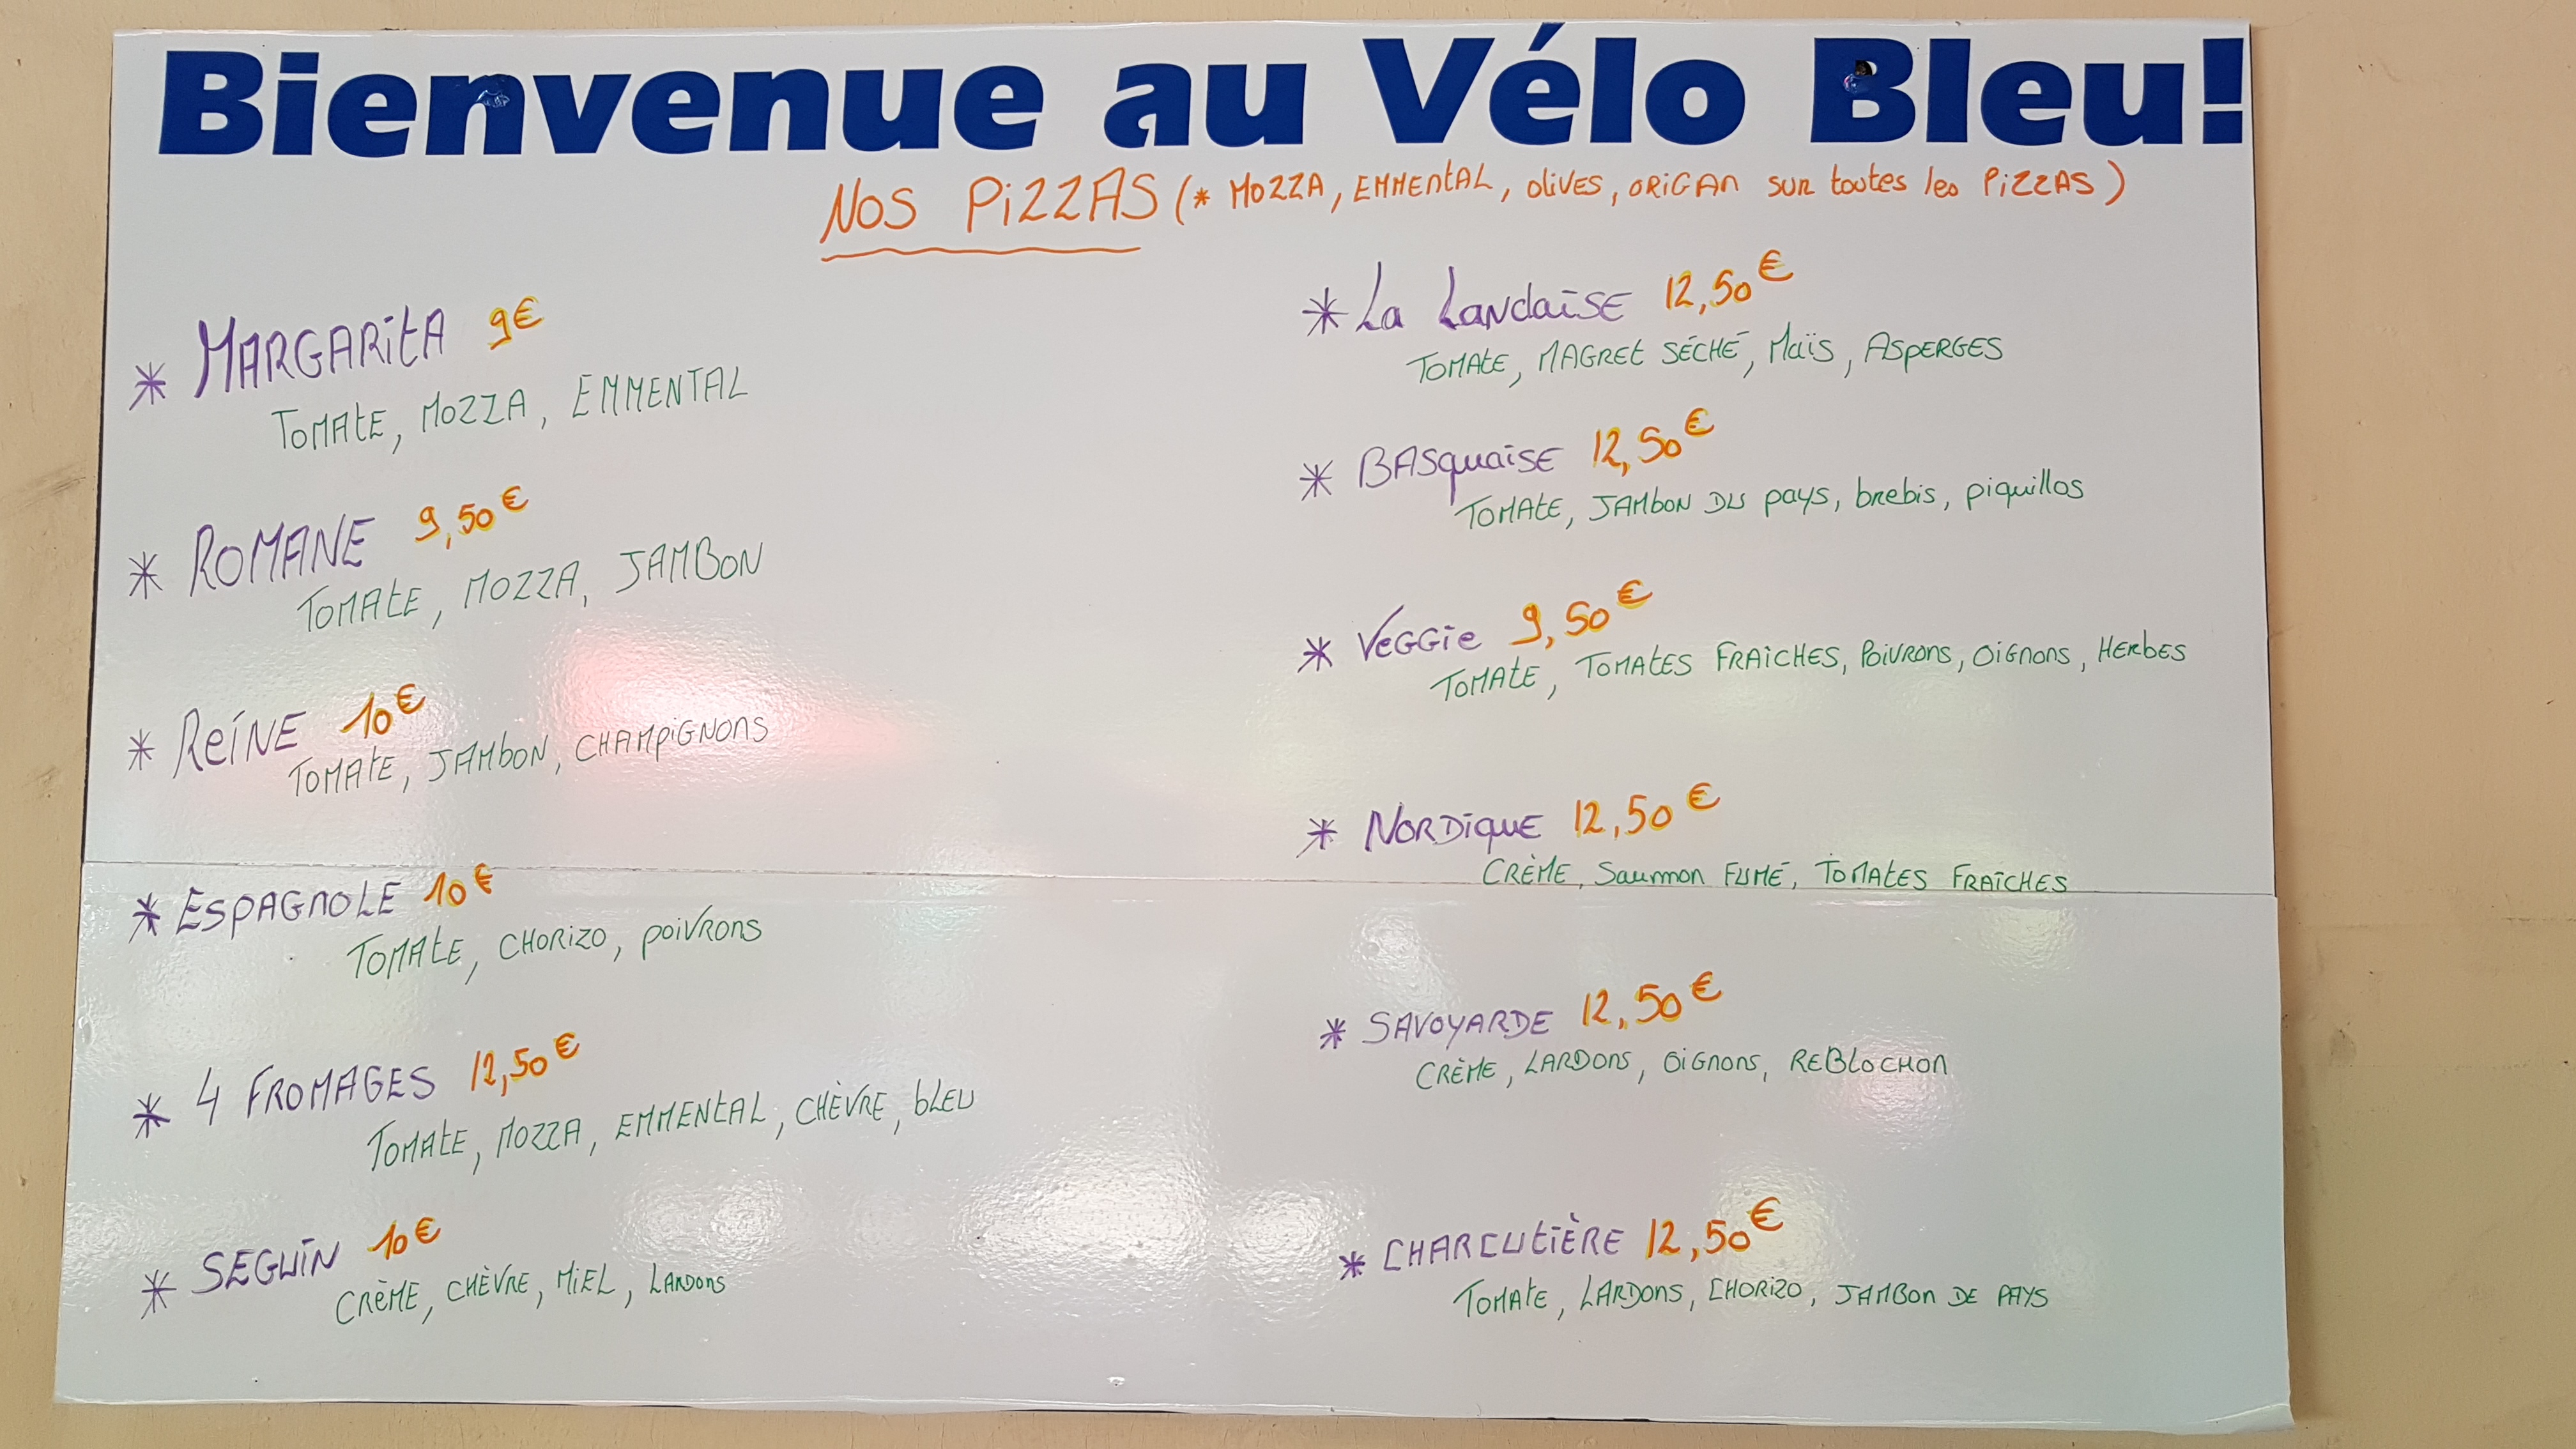 Bienvenue au Vélo Bleu!
NOS PIZZAS (* MOZZA, EMMENTAL, OLIVES, ORIGAN SUR toutes les PIZZAS)
* MARGARITA 9€
TOMATE, MOZZA, EMMENTAL
* ROMANE 9,50€
TOMATE, MOZZA, JAMBON
* REINE 10€
TOMATE, JAMBON, CHAMPIGNONS
* ESPAGNOLE 10€
TOMATE, CHORIZO, POIVRONS
* 4 FROMAGES 12,50€
TOMATE, MOZZA, EMMENTAL, CHÈVRE, BLEU
* SEGUIN 10€
CRÈME, CHÈVRE, MIEL, LARDONS
* La Landaise 12,50€
TOMATE, MAGRET SÉCHÉ, Maïs, ASPERGES
* BASquaise 12,50€
TOMATE, JAMBON DU pays, brebis, piquillos
* VEGGie 9,50€
TOMATE, TOMATES FRAICHES, POIVRONS, OIGNONS, HERBES
* NORDIQUE 12,50€
CRÈME, Saumon FUMÉ, TOMATES FRAÎCHES
* SAVOYARDE 12,50€
CRÈME, LARDONS, OIGNONS, REBLOCHON
* CHARCUTIÈRE 12,50€
TOMATE, LARDONS, CHORIZO, JAMBON DE PAYS